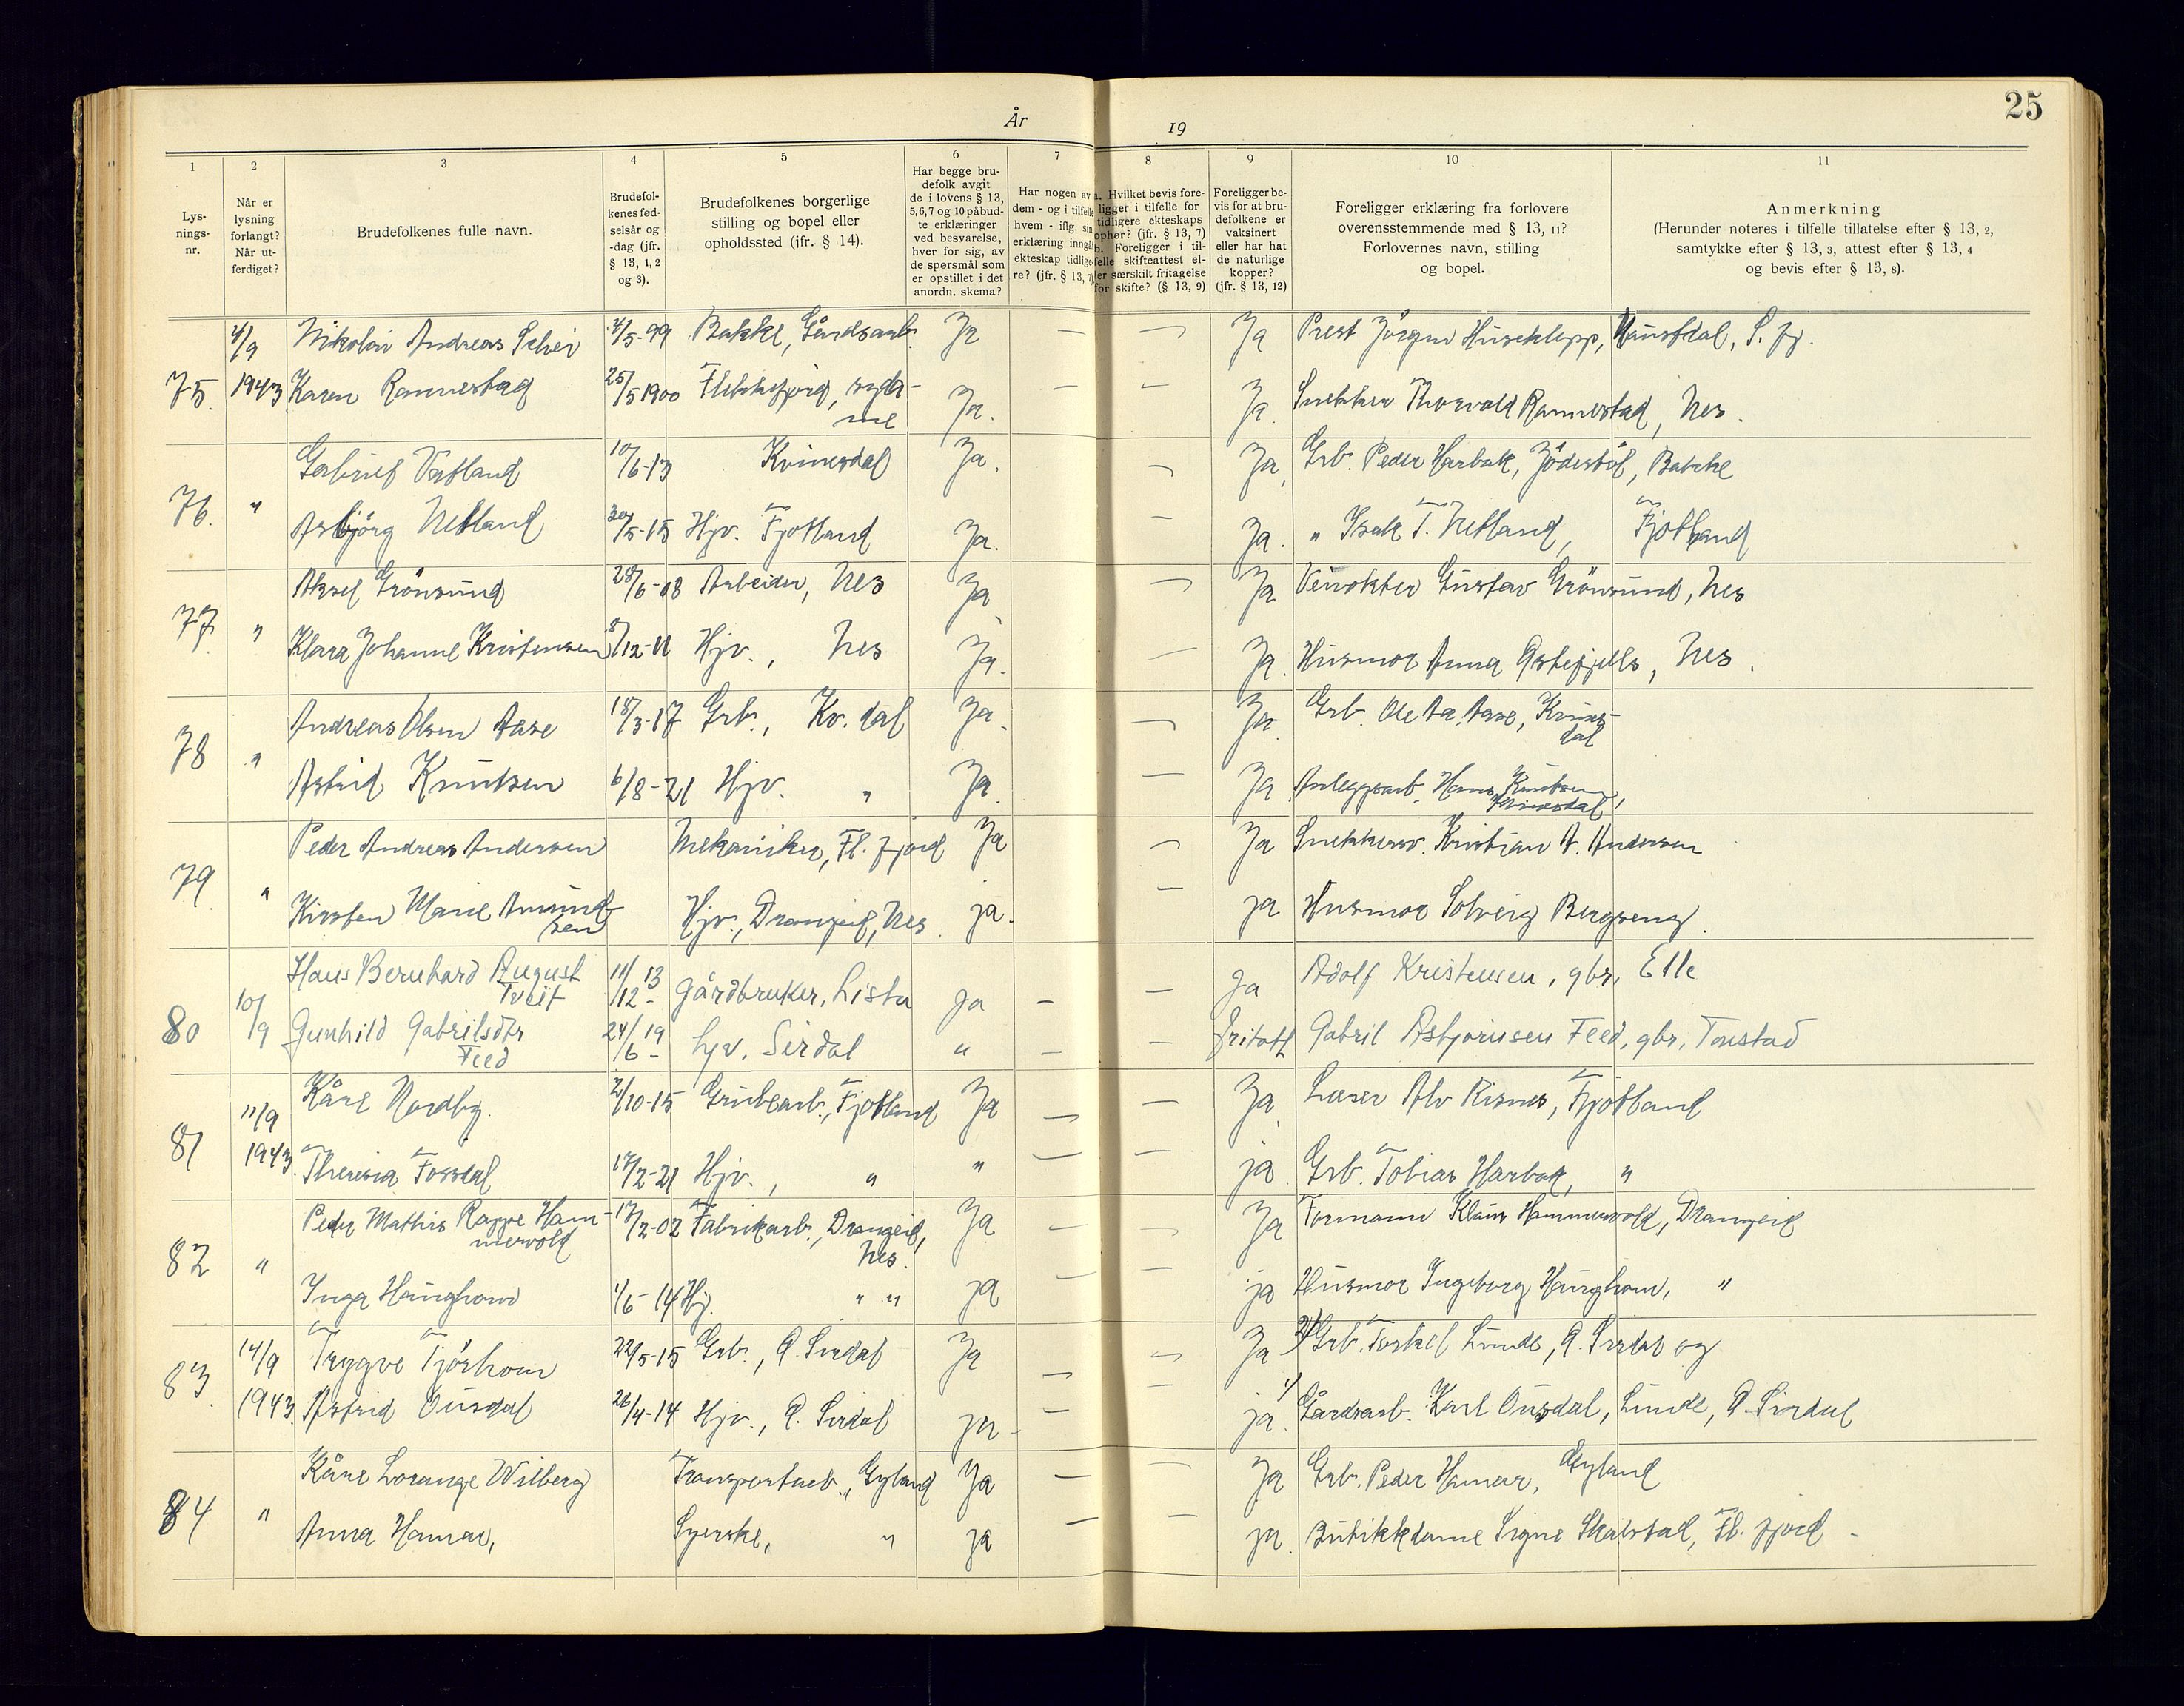 År 19
25
1 2 3 4 5 6 7 8 9 10 11
Lys-
nings-
nr.
Når er
lysning
forlangt?
Når ut-
ferdiget?
Brudefolkenes fulle navn.
Brudefol-
kenes fød-
selsår og
-dag (jfr.
§ 13, 1, 2
og 3).
Brudefolkenes borgerlige
stilling og bopel eller
opholdssted (jfr. § 14).
Har begge bru-
defolk avgit
de i lovens § 13,
5, 6, 7 og 10 påbud-
te erklæringer
ved besvarelse,
hver for sig, av
de spørsmål som
er opstillet i det
anordn. skema?
Har nogen av
dem - og i tilfelle
hvem - iflg. sin
erklæring inngått
ekteskap tidlige-
re? (jfr. § 13, 7)
a. Hvilket bevis fore-
ligger i tilfelle for
tidligere ekteskaps
ophør? (jfr. § 13, 7)
b. Foreligger i til-
felle skifteattest el-
ler særskilt fritagelse
for skifte? (§ 13, 9)
Foreligger be-
vis for at bru-
defolkene er
vaksinert
eller har hat
de naturlige
kopper?
(jfr. § 13, 12)
Foreligger erklæring fra forlovere
overensstemmende med § 13, 11?
Forlovernes navn, stilling
og bopel.
Anmerkning
(Herunder noteres i tilfelle tillatelse efter § 13, 2,
samtykke efter § 13, 3, attest efter § 13, 4
og bevis efter § 13, 8).
4/9 Nikolai Andreas Schei 4/5-99 Bakke, Gårdsarb. Ja — — Ja Prest Jörgen Huseklepp, S. fj.
75. 1943 Karen Rannestad 25/5 1900 Flekkefjord, syda-
me Ja. — — Ja. Snekker Thorvald Rannestad, Nes.
Gabriel Vatland 10/6-13 Kvinesdal Ja. — Ja. Grb. Peder Harbak, Bakke
76. " Asbjörg Netland 30/5-15 Hjv. Fjotland Ja. — Ja. " Isak T. Netland, Fjotland
Aksel Grönsund 28/6-08 Arbeider, Nes Ja — Ja Gustav Grönsund, Nes
77. " Klara Johanne Kristensen 8/12-11 Hjv., Nes Ja. — Ja. Husmor Anna, Nes.
Andreas Olsen Aase 18/3-17 Grb., Kv. dal Ja. — Ja. Grb. Ole Aa. Aase, Kvines-
dal
78 " Astrid Knutsen 6/8-21 Hjv. " Ja. — Ja. Anleggsarb. Hans Knutsen,
Kvinesdal
Peder Andreas Andersen Mekaniker, Fl. fjord Ja — Ja Snekkersv. Kristian A. Andersen
79. " Kirsten Marie Amund-
sen Hjv., Drangeid, Nes. ja. — ja Husmor Solveig Bergseng.
Hans Bernhard August
Tveit 11/12-13 gårdbruker, Lista Ja — — Ja Adolf Kristensen, gbr. Elle
80 10/9 Gunhild Gabrilsdtr
Feed 24/6-19 hjv. Sirdal " — — fritatt Gabril Asbjørnsen Feed, gbr. Tonstad
11/9 Kåre Nordby. 2/10-15 Grubearb., Fjotland Ja — — Ja. Lærer Alv Risnes, Fjotland
81 1943. Theresia Fossdal 17/2-21 Hjv., " " — — ja. Grb. Tobias Harbak, "
Peder Mathis Rappe Ham-
mervold 17/2-02 Fabrikarb., Drangeid,
Nes. Ja — — Ja Formann Klaus Hammervold, Drangeid
82 " Inga Haughom 1/6-14 Hj. " " ja — — ja Husmor Ingeborg Haughom, "
14/9 Trygve Tjörhom 22/5-15 Grb., Ø. Sirdal Ja — — Ja 2) Grb. Torkel Lunde, Ø. Sirdal og
83. 1943. Astrid Ousdal 26/4-14 Hjv., Ø. Sirdal ja — — ja. 1) Gårdsarb. Karl Ousdal, Lunde, Ø. Sirdal
Kåre Lorange Wilberg Transportarb., Gyland Ja — — Ja Grb. Peder Hamar, Gyland
84 " Anna Hamar, Syerske, " ja — — ja. Butikkdame Signe Skålstad, Fl. fjord